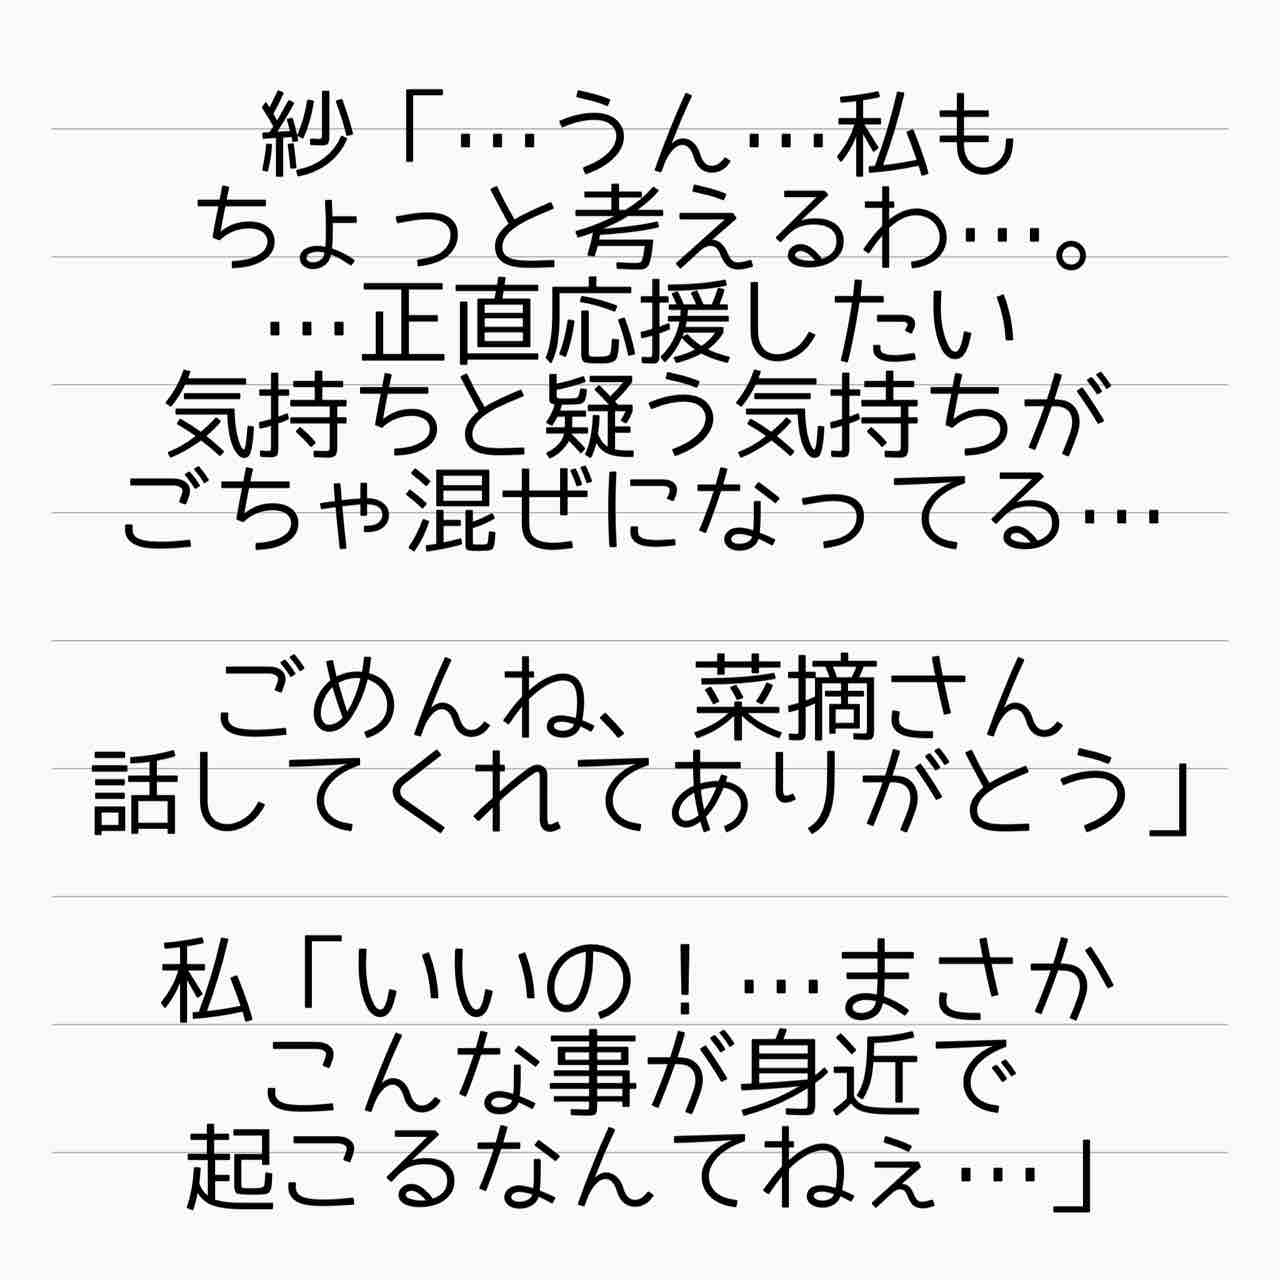 紗「…うん…私も
ちょっと考えるわ…。
…正直応援したい
気持ちと疑う気持ちが
ごちゃ混ぜになってる…
ごめんね、菜摘さん
話してくれてありがとう」
私「いいの！…まさか
こんな事が身近で
起こるなんてねぇ…」